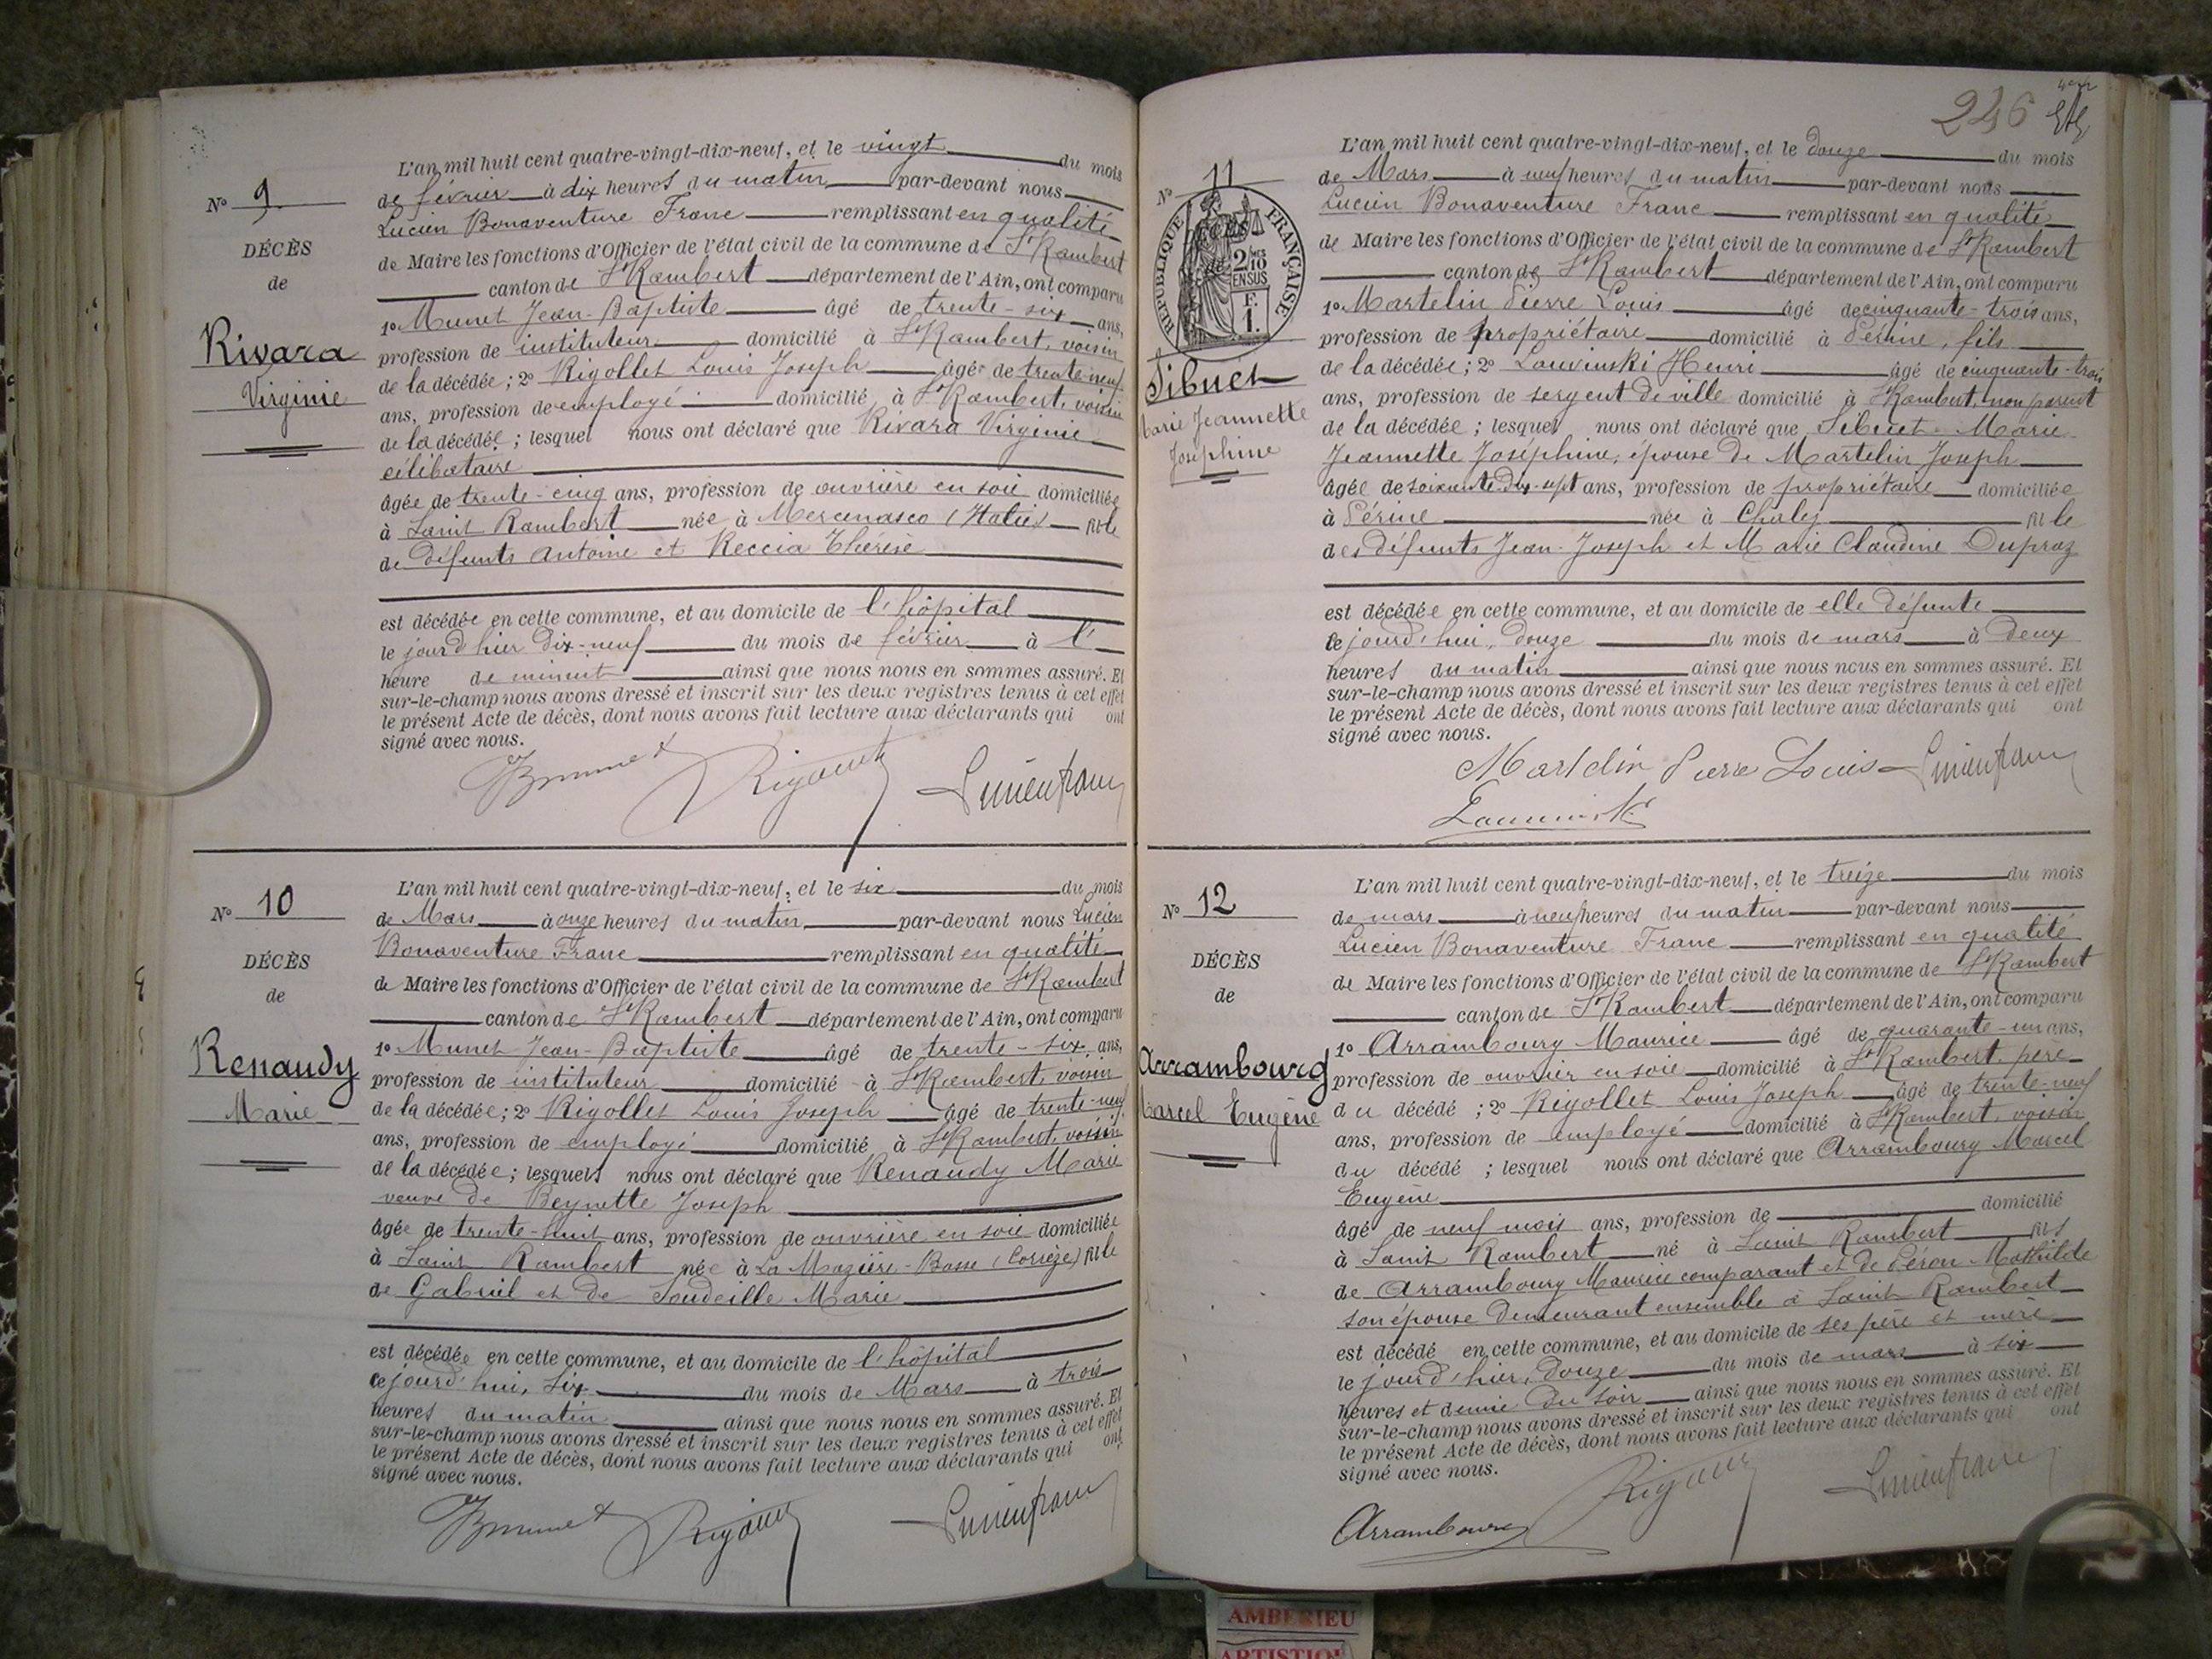 N° 9
DÉCÈS
de
Rivara
Virginie
L'an mil huit cent quatre-vingt-dix-neuf, et le vingt du mois
de février à dix heures du matin par-devant nous
Lucien Bonaventure Franc remplissant en qualité
de Maire les fonctions d'Officier de l'état civil de la commune de St Rambert
canton de St Rambert département de l'Ain, ont comparu
1° Munet Jean-Baptiste âgé de trente-six ans,
profession de instituteur domicilié à St Rambert, voisin
de la décédée; 2° Rigollet Louis Joseph âgé de trente-neuf
ans, profession de employé domicilié à St Rambert, voisin
de la décédée; lesquel nous ont déclaré que Rivara Virginie
célibataire
âgée de trente-cinq ans, profession de ouvrière en soie domiciliée
à Saint Rambert née à Mercenasco (Italie) fille
de défunts Antoine et Reccia Thérèse
est décédée en cette commune, et au domicile de l'hôpital
le jourd'hier dix-neuf du mois de février à l'
heure de minuit ainsi que nous nous en sommes assuré. Et
sur-le-champ nous avons dressé et inscrit sur les deux registres tenus à cet effet
le présent Acte de décès, dont nous avons fait lecture aux déclarants qui ont
signé avec nous.
N° 10
DÉCÈS
de
Renaudy
Marie
L'an mil huit cent quatre-vingt-dix-neuf, et le six du mois
de Mars à onze heures du matin par-devant nous Lucien
Bonaventure Franc remplissant en qualité
de Maire les fonctions d'Officier de l'état civil de la commune de St Rambert
canton de St Rambert département de l'Ain, ont comparu
1° Munet Jean-Baptiste âgé de trente-six ans,
profession de instituteur domicilié à St Rambert, voisin
de la décédée; 2° Rigollet Louis Joseph âgé de trente-neuf
ans, profession de employé domicilié à St Rambert, voisin
de la décédée; lesquels nous ont déclaré que Renaudy Marie
veuve de Beynette Joseph
âgée de trente-huit ans, profession de ouvrière en soie domiciliée
à Saint Rambert née à La Mazière-Basse (Corrèze) fille
de Gabriel et de Soudeille Marie
est décédée en cette commune, et au domicile de l'hôpital
cejourd'hui, six du mois de Mars à trois
heures du matin ainsi que nous nous en sommes assuré. Et
sur-le-champ nous avons dressé et inscrit sur les deux registres tenus à cet effet
le présent Acte de décès, dont nous avons fait lecture aux déclarants qui ont
signé avec nous.
246
N° 11
RÉPUBLIQUE FRANÇAISE
2/10 MES
EN SUS
F.
1.
Sibuet
Marie Jeannette
Joséphine
L'an mil huit cent quatre-vingt-dix-neuf, et le douze du mois
de Mars à neuf heures du matin par-devant nous
Lucien Bonaventure Franc remplissant en qualité
de Maire les fonctions d'Officier de l'état civil de la commune de St Rambert
canton de St Rambert département de l'Ain, ont comparu
1° Martelin Pierre Louis âgé de cinquante-trois ans,
profession de propriétaire domicilié à Sérine, fils
de la décédée; 2° Louvinski Henri âgé de cinquante-trois
ans, profession de sergent de ville domicilié à St Rambert, non parent
de la décédée; lesquel nous ont déclaré que Sibuet Marie
Jeannette Joséphine, épouse de Martelin Joseph
âgée de soixante-dix-sept ans, profession de propriétaire domiciliée
à Sérine née à Chaley fille
des défunts Jean-Joseph et Marie Claudine Dupraz
est décédée en cette commune, et au domicile de elle défunte
cejourd'hui, douze du mois de mars à deux
heures du matin ainsi que nous nous en sommes assuré. Et
sur-le-champ nous avons dressé et inscrit sur les deux registres tenus à cet effet
le présent Acte de décès, dont nous avons fait lecture aux déclarants qui ont
signé avec nous.
Martelin Pierre Louis
N° 12
DÉCÈS
de
Arrambourg
Marcel Eugène
L'an mil huit cent quatre-vingt-dix-neuf, et le treize du mois
de mars à neuf heures du matin par-devant nous
Lucien Bonaventure Franc remplissant en qualité
de Maire les fonctions d'Officier de l'état civil de la commune de St Rambert
canton de St Rambert département de l'Ain, ont comparu
1° Arrambourg Maurice âgé de quarante-un ans,
profession de ouvrier en soie domicilié à St Rambert, père
du décédé; 2° Rigollet Louis Joseph âgé de trente-neuf
ans, profession de employé domicilié à St Rambert, voisin
du décédé; lesquel nous ont déclaré que Arrambourg Marcel
Eugène
âgé de neuf mois ans, profession de domicilié
à Saint Rambert né à Saint Rambert fils
de Arrambourg Maurice comparant et de Péron Mathilde
son épouse demeurant ensemble à Saint Rambert
est décédé en cette commune, et au domicile de ses père et mère
le jourd'hier, douze du mois de mars à six
heures et demie du soir ainsi que nous nous en sommes assuré. Et
sur-le-champ nous avons dressé et inscrit sur les deux registres tenus à cet effet
le présent Acte de décès, dont nous avons fait lecture aux déclarants qui ont
signé avec nous.
Arrambourg
AMBERIEU